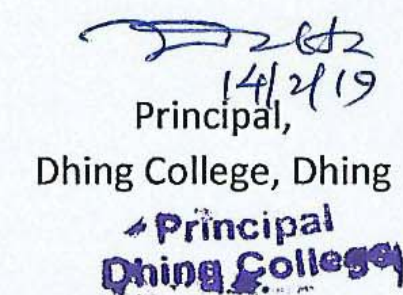 14/2/19
Principal,
Dhing College, Dhing
Principal
Dhing College